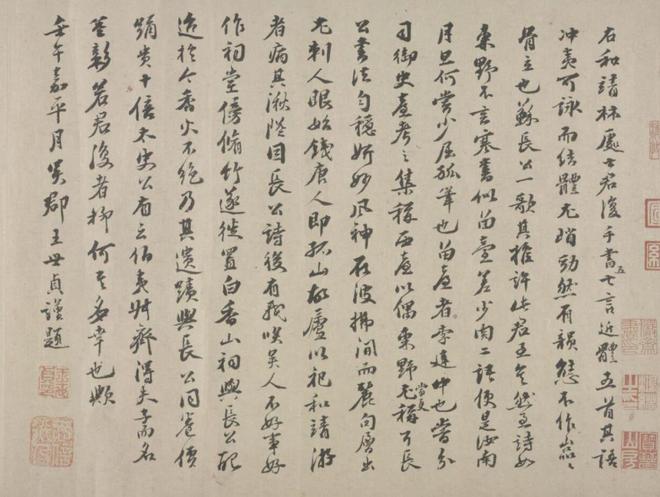 右和靖林處士君復手書五七言近體五首其語
冲夷可詠而結體尤峭勁然有韻態不作巉〻
骨立也蘇長公一歌其推許此君至矣然至詩如
東野不言寒書似留臺差少肉二語便是汝南
月旦何嘗少屈狐筆也留臺者李建中也嘗分
司御史臺考之集稱西臺以偶東野長
公書法匀穩妍妙風神在波拂間而麗句層出
尤刺人眼始錢唐人即孤山故廬以祀和靖游
者病其湫隘因長公詩後有我笑吳人不好事好
作祠堂傍脩竹遂徙置白香山祠與長公配
迨於今香火不絶乃其遺蹟與長公同卷價
踊貴十倍太史公有云伯夷叔齊得夫子而名
益彰若君復者抑何其多幸也歟
壬午嘉平月吳郡王世貞謹題